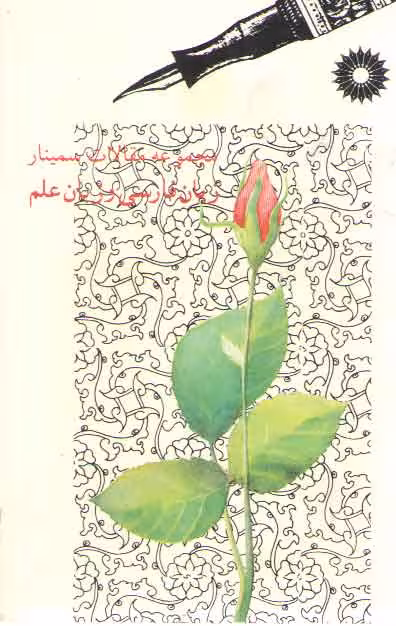 مجموعه مقالات سمینار
زبان فارسی و زبان علم